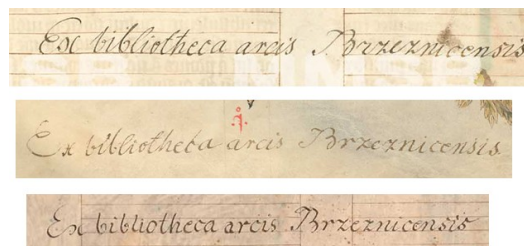 Ex bibliotheca arcis Brzeznicensis
Ex bibliotheca arcis Brzeznicensis
Ex bibliotheca arcis Brzeznicensis